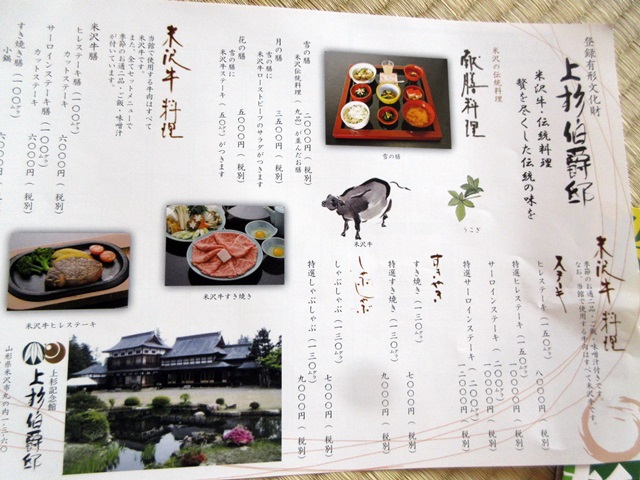 登録有形文化財
上杉伯爵邸
米沢牛・伝統料理
贅を尽くした伝統の味を
米沢の伝統料理
献膳料理
雪の膳
米沢伝統料理(九品)が並んだお膳
二〇〇〇円(税別)
月の膳
雪の膳に
米沢牛ローストビーフのサラダがつきます
三五〇〇円(税別)
花の膳
雪の膳に
米沢牛ステーキ(五〇㌘)がつきます
五〇〇〇円(税別)
雪の膳
米沢牛
うこぎ
米沢牛料理
当館で使用する牛肉はすべて
米沢牛です。
また、全てセットメニューで
季節のお通二品・ご飯・味噌汁
が付いています。
米沢牛膳
ヒレステーキ膳(一〇〇㌘)
カットステーキ
サーロインステーキ膳(一〇〇㌘)
カットステーキ
六〇〇〇円(税別)
すき焼き膳(一〇〇㌘)
小鍋
六〇〇〇円(税別)
米沢牛ヒレステーキ
米沢牛すき焼き
米沢牛料理
季節のお通二品・ご飯・味噌汁付きです。
なお、当館で使用する牛肉はすべて米沢牛です。
ステーキ
ヒレステーキ(一五〇㌘)
八〇〇〇円(税別)
特選ヒレステーキ(一五〇㌘)
一〇〇〇〇円(税別)
サーロインステーキ(二〇〇㌘)
特選サーロインステーキ(二〇〇㌘)
一二〇〇〇円(税別)
すきやき
すき焼き(一三〇㌘)
七〇〇〇円(税別)
特選すき焼き(一三〇㌘)
九〇〇〇円(税別)
しゃぶしゃぶ
しゃぶしゃぶ(一三〇㌘)
七〇〇〇円(税別)
特選しゃぶしゃぶ(一三〇㌘)
九〇〇〇円(税別)
上杉記念館
上杉伯爵邸
山形県米沢市丸の内一-三-六〇